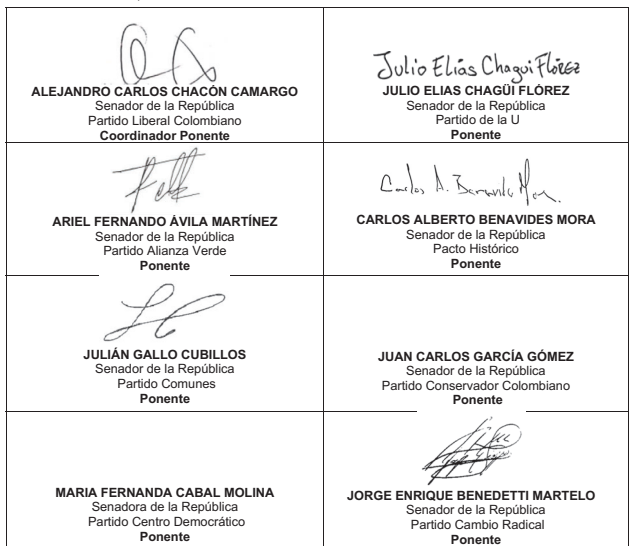 ALEJANDRO CARLOS CHACÓN CAMARGO
Senador de la República
Partido Liberal Colombiano
Coordinador Ponente
Julio Elías Chagui Flórez
JULIO ELIAS CHAGÜI FLÓREZ
Senador de la República
Partido de la U
Ponente
ARIEL FERNANDO ÁVILA MARTÍNEZ
Senador de la República
Partido Alianza Verde
Ponente
Carlos A. Benavides Mora
CARLOS ALBERTO BENAVIDES MORA
Senador de la República
Pacto Histórico
Ponente
JULIÁN GALLO CUBILLOS
Senador de la República
Partido Comunes
Ponente
JUAN CARLOS GARCÍA GÓMEZ
Senador de la República
Partido Conservador Colombiano
Ponente
MARIA FERNANDA CABAL MOLINA
Senadora de la República
Partido Centro Democrático
Ponente
JORGE ENRIQUE BENEDETTI MARTELO
Senador de la República
Partido Cambio Radical
Ponente